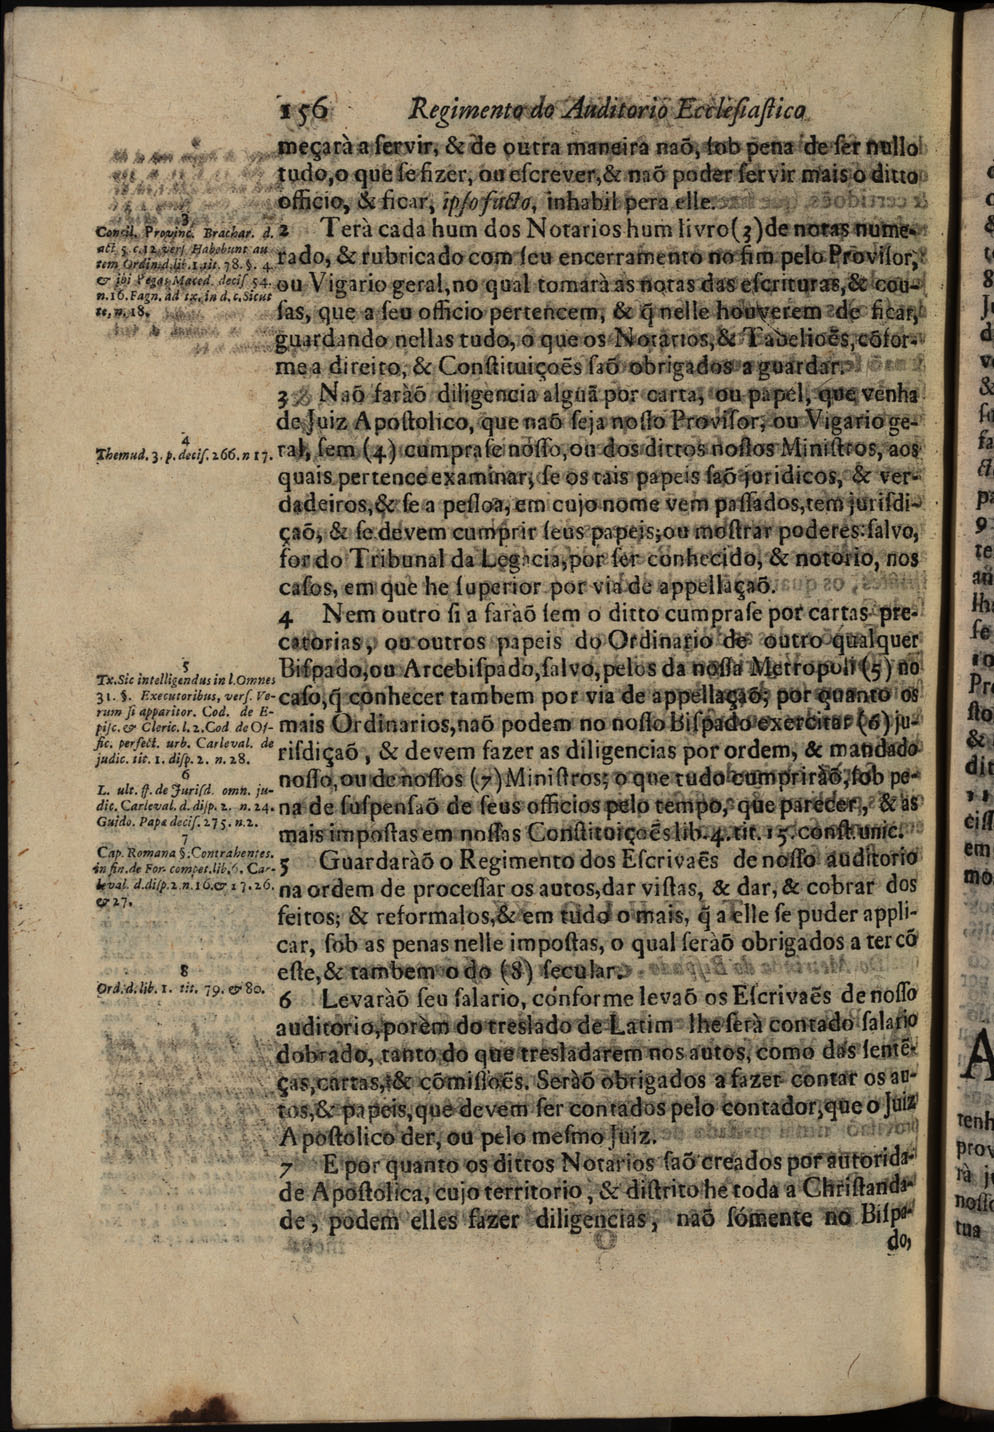 156 Regimento do Auditorio Ecclesiastico
meçarà a ſervir, & de outra maneira naõ, ſob pena de ſer nullo
tudo, o que ſe fizer, ou eſcrever, & naõ poder ſervir mais o ditto
officio, & ficar, ipſo facto, inhabil pera elle.
2 Terà cada hum dos Notarios hum livro (3) de notas nume-
rado, & rubricado com ſeu encerramento no fim pelo Proviſor,
ou Vigario geral, no qual tomarà as notas das eſcrituras, & cou-
ſas, que a ſeu officio pertencem, & q̃ nelle houverem de ficar,
guardando nellas tudo, o que os Notarios, & Tabelioẽs, cõfor-
me a direito, & Conſtituiçoẽs ſaõ obrigados a guardar.
3 Naõ faràõ diligencia algũa por carta, ou papel, que venha
de Juiz Apoſtolico, que naõ ſeja noſſo Proviſor, ou Vigario ge-
ral, ſem (4) cumpraſe noſſo, ou dos dittos noſſos Miniſtros, aos
quais pertence examinar, ſe os tais papeis ſaõ juridicos, & ver-
dadeiros, & ſe a peſſoa, em cujo nome vem paſſados, tem juriſdi-
çaõ, & ſe devem cumprir ſeus papeis, ou moſtrar poderes: ſalvo,
for do Tribunal da Legacia, por ſer conhecido, & notorio, nos
caſos, em que he ſuperior por via de appellaçaõ.
4 Nem outro ſi a faràõ ſem o ditto cumpraſe por cartas pre-
catorias, ou outros papeis do Ordinario de outro qualquer
Biſpado, ou Arcebiſpado, ſalvo, pelos da noſſa Metropoli (5) no
caſo, q̃ conhecer tambem por via de appellaçaõ; por quanto os
mais Ordinarios, naõ podem no noſſo Biſpado exercitar (6) ju-
riſdiçaõ, & devem fazer as diligencias por ordem, & mandado
noſſo, ou de noſſos (7) Miniſtros; o que tudo cumpriràõ, ſob pe-
na de ſuſpenſaõ de ſeus officios pelo tempo, que parecer, & as
mais impoſtas em noſſas Conſtituiçoẽs lib. 4. tit. 15. conſt. unic.
5 Guardaràõ o Regimento dos Eſcrivaẽs de noſſo auditorio
na ordem de proceſſar os autos, dar viſtas, & dar, & cobrar dos
feitos; & reformalos, & em tudo o mais, q̃ a elle ſe puder appli-
car, ſob as penas nelle impoſtas, o qual ſeràõ obrigados a ter cõ
eſte, & tambem o do (8) ſecular.
6 Levaràõ ſeu ſalario, conforme levaõ os Eſcrivaẽs de noſſo
auditorio, porèm do treslado de Latim lhe ſerà contado ſalario
dobrado, tanto do que tresladarem nos autos, como das ſentẽ-
ças, cartas, & cõmiſſoẽs. Seràõ obrigados a fazer contar os au-
tos, & papeis, que devem ſer contados pelo contador, que o Juiz
Apoſtolico der, ou pelo meſmo Juiz.
7 E por quanto os dittos Notarios ſaõ creados por autorida-
de Apoſtolica, cujo territorio, & diſtrito he toda a Chriſtanda-
de, podem elles fazer diligencias, naõ ſómente no Biſpa-
do,
3
Concil. Provinc. Brachar. d.
act. 5. c. 12. verſ. Habebunt au
tem, Ordin. d. lib. 1. tit. 78. §. 4.
& ibi Pegas, Maced. deciſ 54.
n. 16. Fagn. ad tx. in d. c. Sicut
te, n. 18.
4
Themud. 3. p. deciſ. 266. n 17.
5
Tx. Sic intelligendus in l. Omnes
31. §. Executoribus, verſ. Ve-
rum ſi apparitor. Cod. de E-
piſc. & Cleric. l. 2. Cod de Of-
fic. perfect. urb. Carleval. de
judic. tit. 1. diſp. 2. n. 28.
6
L. ult. ff. de Juriſd. omn. ju-
dic. Carleval. d. diſp. 2. n. 24.
Guido. Papa deciſ. 275. n. 2.
7
Cap. Romana §. Contrahentes.
in fin. de For. compet. lib. 6. Car-
leval. d. diſp. 2. n. 16. & 17. 26.
& 27.
8
Ord. d. lib. 1. tit. 79. & 80.